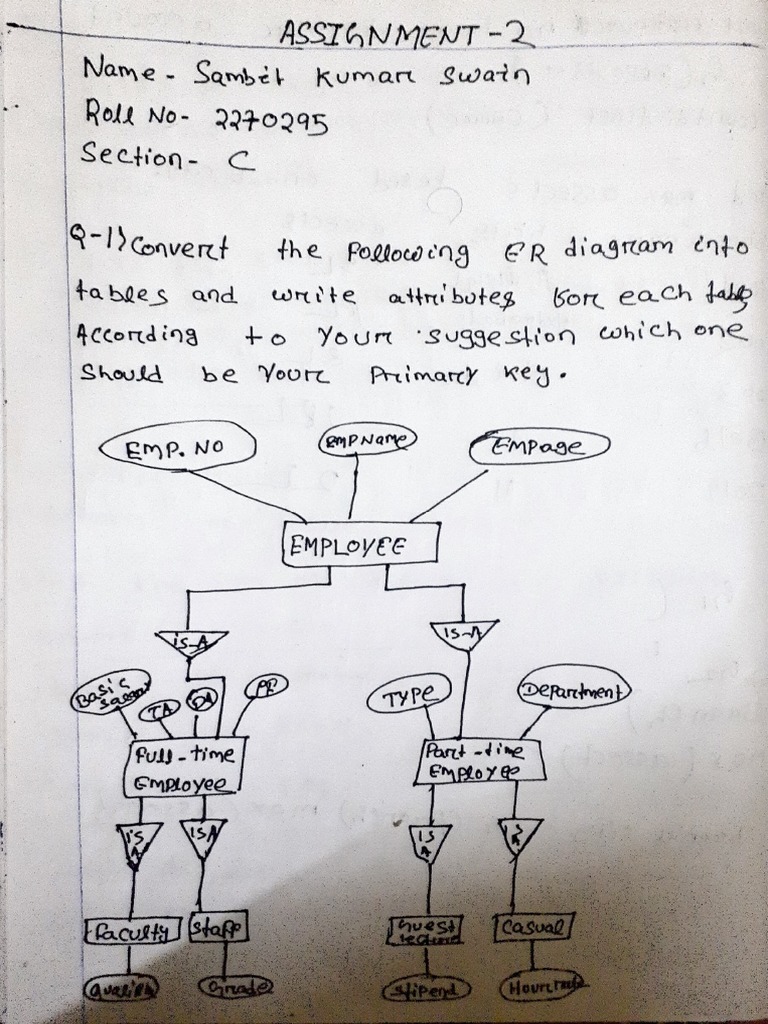 ASSIGNMENT-2
Name - Sambit Kumar Swain
Roll No- 2270295
Section- C
Q-1) Convert the following ER diagram into
tables and write attributes for each table,
According to your suggestion which one
should be your Primary key.
EMP. NO
EMP Name
EMPage
EMPLOYEE
is-A
is-A
Basic
TA
DA
PF
TYPE
Department
Full-time
Employee
Part-time
Employee
is
A
ISA
IS
A
IS
A
Faculty
Staff
Guest
Casual
Grade
Stipend